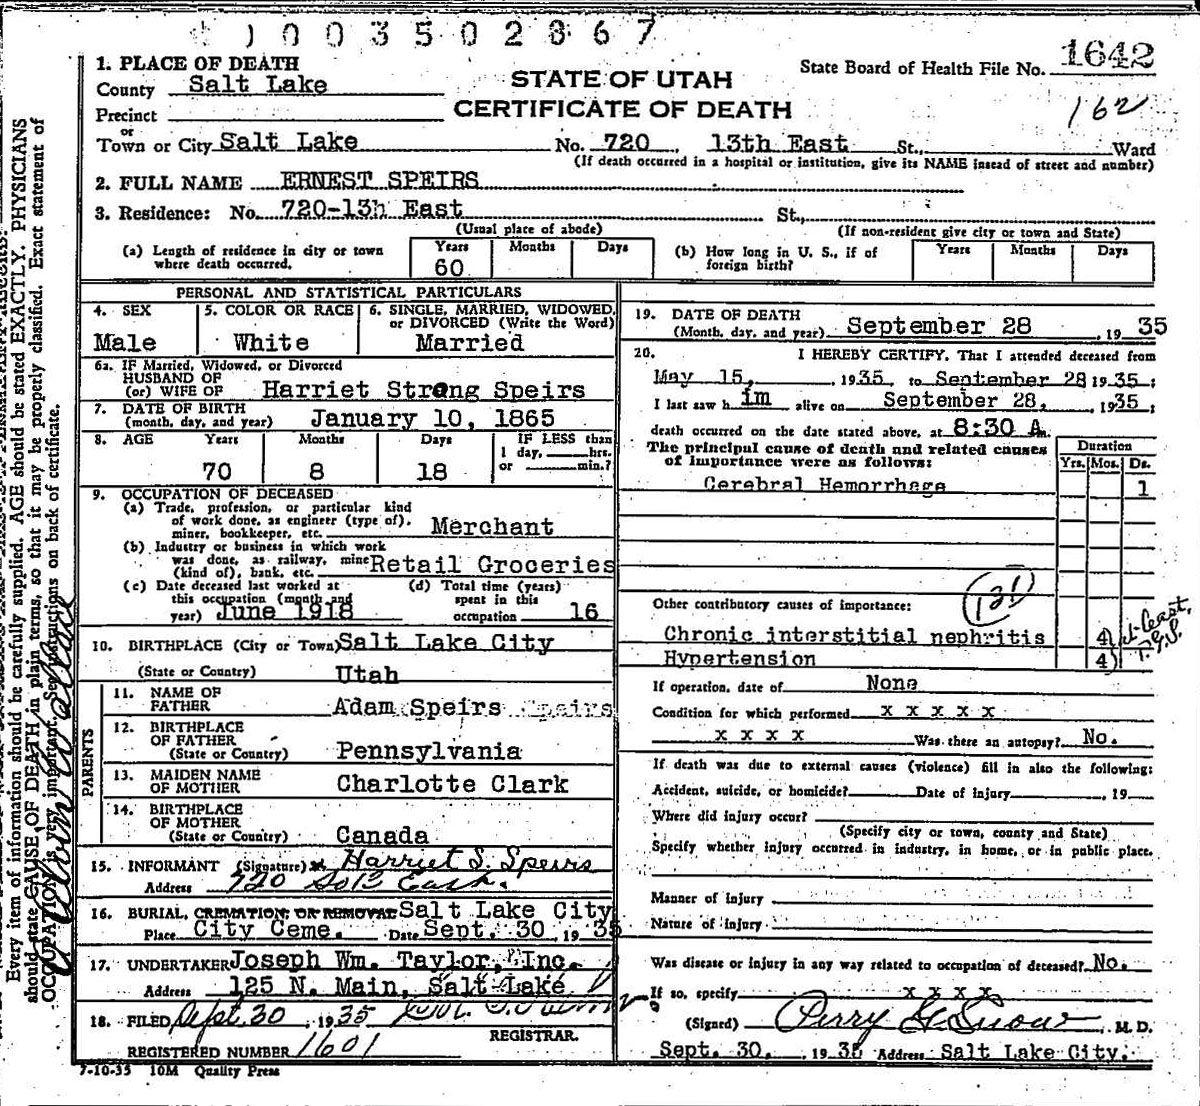 1003502867
1. PLACE OF DEATH
County Salt Lake
Precinct
or
Town or City Salt Lake No. 720 13th East St., Ward
(If death occurred in a hospital or institution, give its NAME insead of street and number)
STATE OF UTAH
CERTIFICATE OF DEATH
State Board of Health File No. 1642
162
2. FULL NAME ERNEST SPEIRS
3. Residence: No. 720-13h East St.,
(Usual place of abode) (If non-resident give city or town and State)
(a) Length of residence in city or town where death occurred. Years 60 Months Days
(b) How long in U. S., if of foreign birth? Years Months Days
PERSONAL AND STATISTICAL PARTICULARS
4. SEX Male
5. COLOR OR RACE White
6. SINGLE, MARRIED, WIDOWED, or DIVORCED (Write the Word) Married
6a. IF Married, Widowed, or Divorced
HUSBAND OF
(or) WIFE OF Harriet Strong Speirs
7. DATE OF BIRTH
(month, day, and year) January 10, 1865
8. AGE Years 70 Months 8 Days 18 IF LESS than 1 day, hrs. or min.?
9. OCCUPATION OF DECEASED
(a) Trade, profession, or particular kind
of work done, as engineer (type of),
miner, bookkeeper, etc. Merchant
(b) Industry or business in which work
was done, as railway, mine
(kind of), bank, etc. Retail Groceries
(c) Date deceased last worked at
this occupation (month and
year) June 1918
(d) Total time (years)
spent in this
occupation 16
10. BIRTHPLACE (City or Town) Salt Lake City
(State or Country) Utah
PARENTS
11. NAME OF
FATHER Adam Speirs Speirs
12. BIRTHPLACE
OF FATHER
(State or Country) Pennsylvania
13. MAIDEN NAME
OF MOTHER Charlotte Clark
14. BIRTHPLACE
OF MOTHER
(State or Country) Canada
15. INFORMANT (Signature) x Harriet S. Speirs
Address 720 So 13 East.
16. BURIAL, CREMATION, OR REMOVAL Salt Lake City
Place City Ceme. Date Sept. 30, 1935
17. UNDERTAKER Joseph Wm. Taylor, Inc.
Address 125 N. Main, Salt Lake
18. FILED Sept. 30, 1935
REGISTRAR.
REGISTERED NUMBER 1601
7-10-35 10M Quality Press
19. DATE OF DEATH
(Month, day, and year) September 28, 1935
20. I HEREBY CERTIFY, That I attended deceased from
May 15, 1935, to September 28 1935;
I last saw h im alive on September 28, 1935;
death occurred on the date stated above, at 8:30 A m.
The principal cause of death and related causes
of importance were as follows:
Duration
Yrs. Mos. Ds.
Cerebral Hemorrhage 1
131
Other contributory causes of importance:
Chronic interstitial nephritis 4)
Hypertension 4)
at least,
P.G.S.
If operation, date of None
Condition for which performed x x x x x
x x x x Was there an autopsy? No.
If death was due to external causes (violence) fill in also the following:
Accident, suicide, or homicide? Date of injury , 19
Where did injury occur?
(Specify city or town, county and State)
Specify whether injury occurred in industry, in home, or in public place.
Manner of injury
Nature of injury
Was disease or injury in any way related to occupation of deceased? No.
If so, specify x x x x
(Signed) Perry G Snow, M. D.
Sept. 30, 1935 Address Salt Lake City.
Every item of information should be carefully supplied. AGE should be stated EXACTLY. PHYSICIANS
should state CAUSE OF DEATH in plain terms, so that it may be properly classified. Exact statement of
OCCUPATION is very important. See instructions on back of certificate.